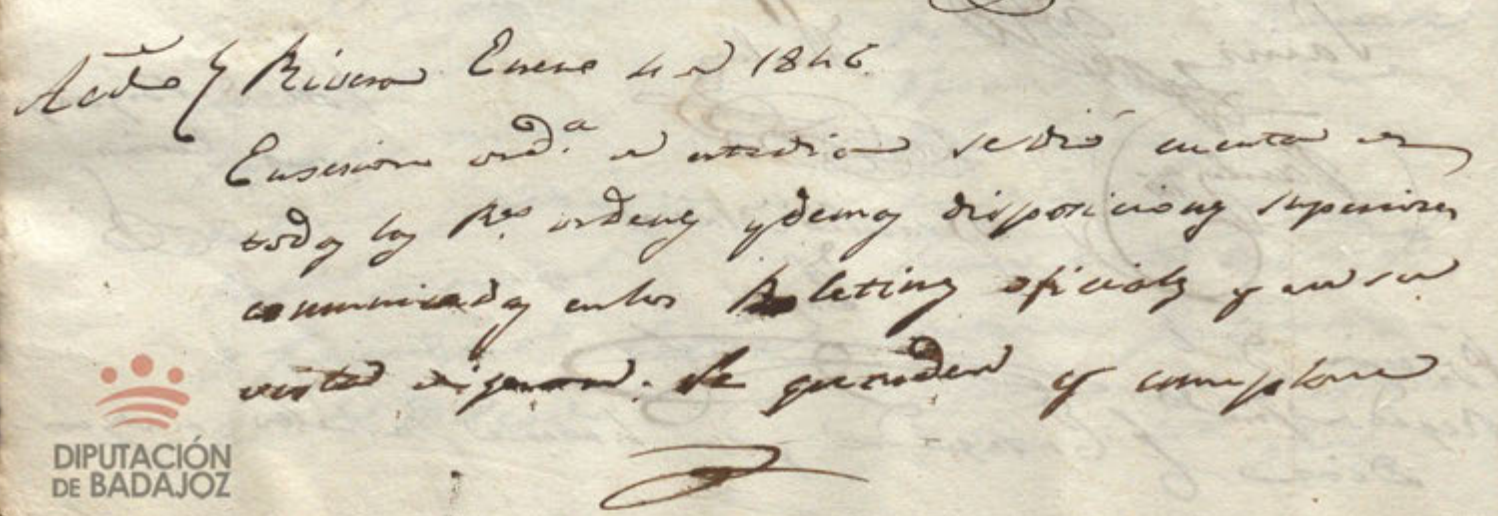 Acdo y Rivera Enero 4 de 1846.
En sesion ord.ª de este dia se dió cuenta de
todas las Rs ordenes y demas disposiciones superiores
comunicadas en los Boletines oficiales y en su
vista dijeron. Se guarden y cumplan
DIPUTACIÓN
DE BADAJOZ